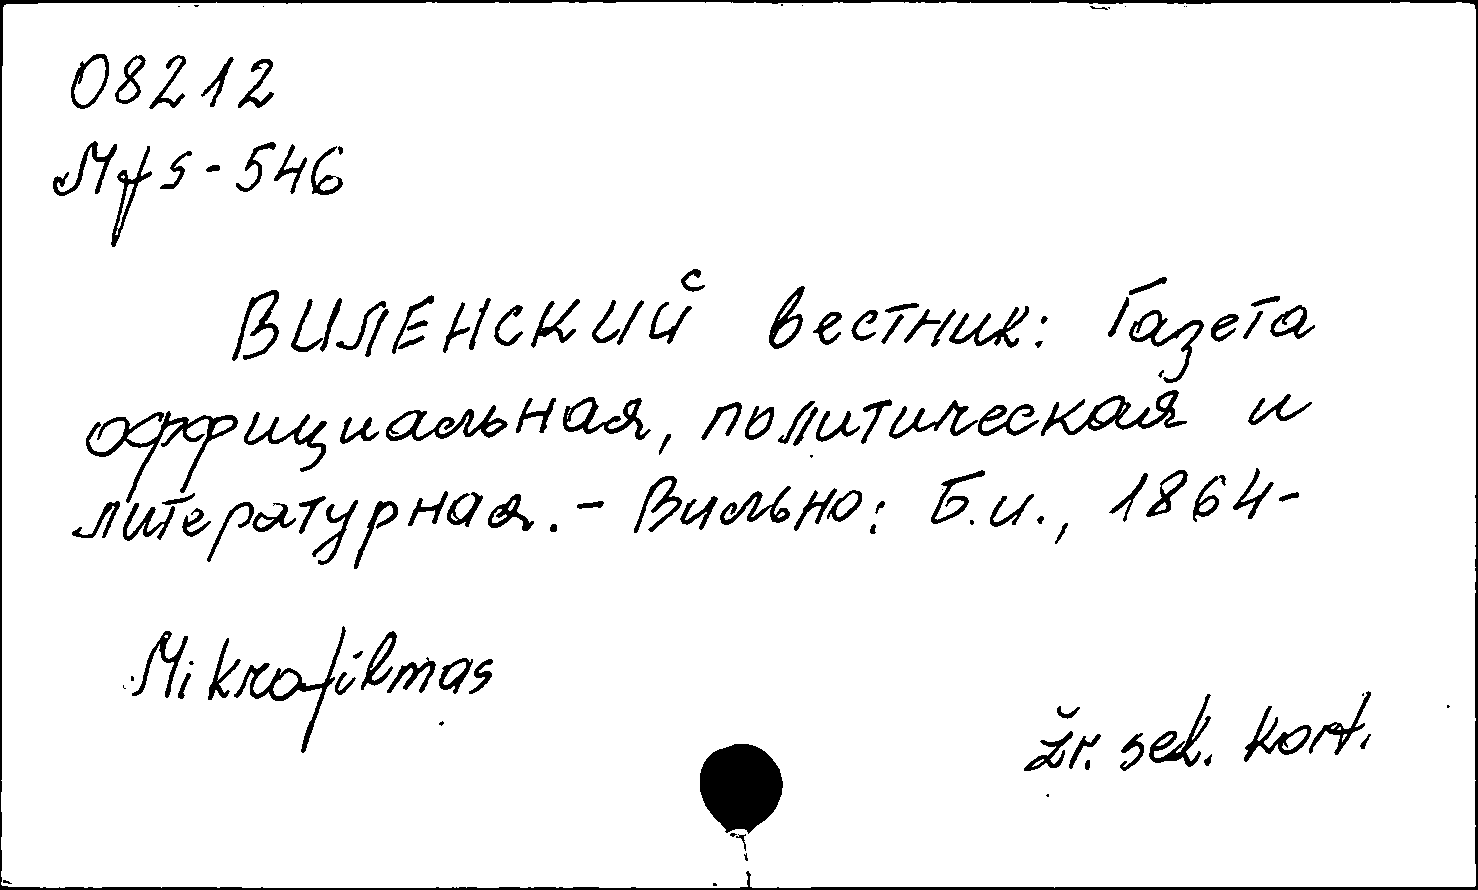 08212
Mfs-546
ВИЛЕНСКИЙ вестник: Газета
оффициальная, политическая и
литературная. - Вильно: Б.и., 1864-
Mikrofilmas
žr. sek. kort.